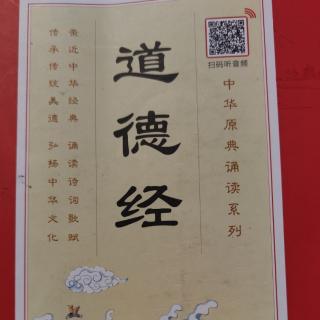 道德经
扫码听音频
中华原典诵读系列
亲近中华经典 诵读诗词歌赋
传承传统美德 弘扬中华文化